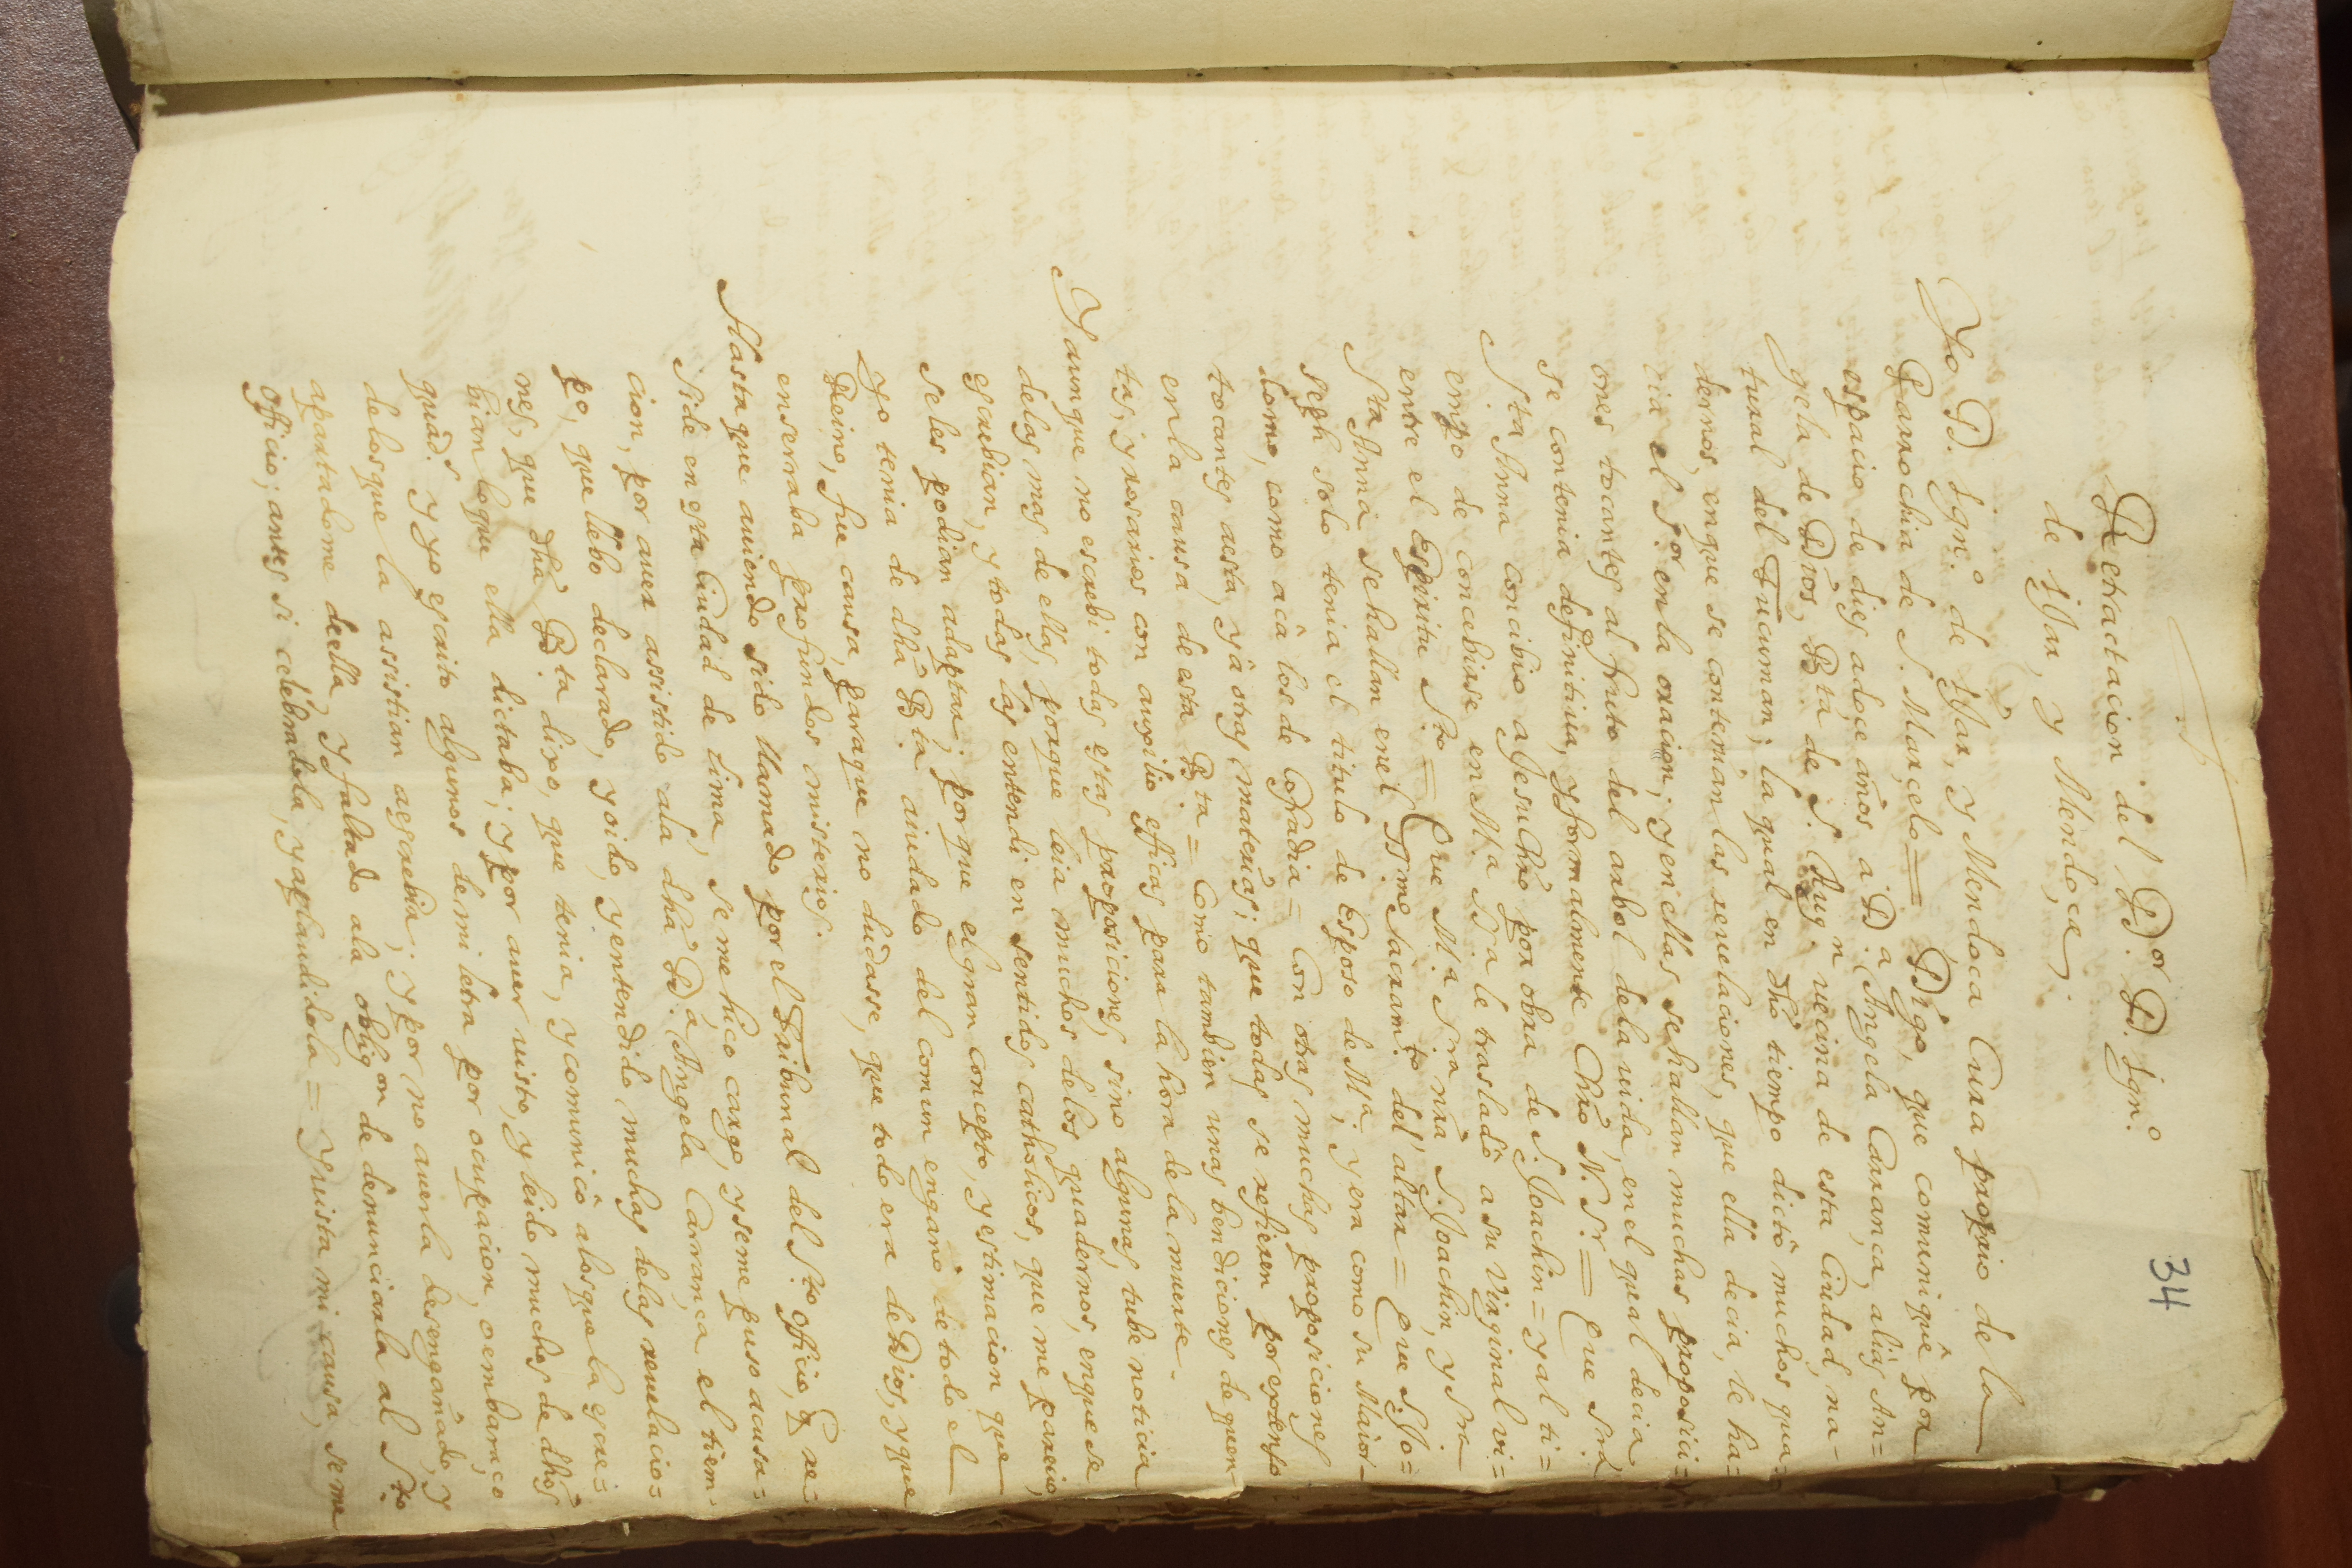 34
Retractacion del D.or D. Ign.o
de Yjar, y Mendoça.
Yo D. Ign.o de Yjar, y Mendoca Cura proprio de la
Parrochia de S. Marcelo = Digo, que comuniquê por
espacio de dies adoçe años a D.a Angela Carança, aliàs An=
gela de Dios, B.ta de S. Aug.n vecina de esta Ciudad, na-
tural del Tucuman; la qual en dhô tiempo dictô muchos qua=
dernos, enque se contenian las reuelaciones, que ella decia, le ha=
cia el S.or en la oracion; y en ellas se hallan muchas proposici=
ones tocantes al fruto del arbol de la vida, en el qual decia
se contenia definitiua, y formalmente Chrô N. Sr. = Que Srâ
S.ta Anna concibio a Jesu Chrô por obra de S. Joachin = y al ti=
empo de concebirse en M.a SS.a le trasladô a su Virginal vi=
entre el Espiritu S.to = Que M.a S.ra nrâ S. Joachin, y Sra
S.ta Anna se hallan en el SS.mo Sacram.to del altar = Que S. Jo=
seph solo tenia el titulo de Esposo de M.a y era como su Maior-
domo, como acâ los de Cofradia = Con otras muchas proposiciones
tocantes aesta, yâ otras materias; que todas se refieren por extenso
en la causa de esta B.ta = Como tambien unas bendiciones de quen-
tas, y rosarios con auxilio eficas para la hora de la muerte.
Y aunque no escrebi todas estas proposiciones, sino algunas, tube noticia
delas mas de ellas, porque leia muchos delos quadernos, enque se
escrebian, y todas las entendi en sentidos catholicos, que me parecio,
seles podian adaptar; por que el gran concepto, y estimacion que
yo tenia de dhâ B.ta aiudado del comun engaño de todo el
Reino, fue causa, paraque no dudasse, que todo era de Dios, y que
enserraba profundos misterios.
Hasta que auiendo sido llamado por el Tribunal del S.to officio, q̃ re=
side en esta Ciudad de Lima, se me hico cargo, y seme puso acusa=
cion, por auer assistido ala dhâ D.a Angela Carrança el tiem-
po, que llebo declarado, y oido, y entendido muchas delas reuelacio=
nes, que dhâ B.ta dixo, que tenia, y comunicô alosque la escre=
bian loque ella dictaba; y por auer visto, y leido muchos de dhôs
quad.s y yo escrito algunos demi letra por ocupacion, o embaraço
de los que la assistian aescrebir; y por no auerla desengañado, y
apartadome deella, y faltado ala oblig.on de denunciarla al S.to
Officio; antes si celebradola, y aplaudidola = Y vista mi causa, seme